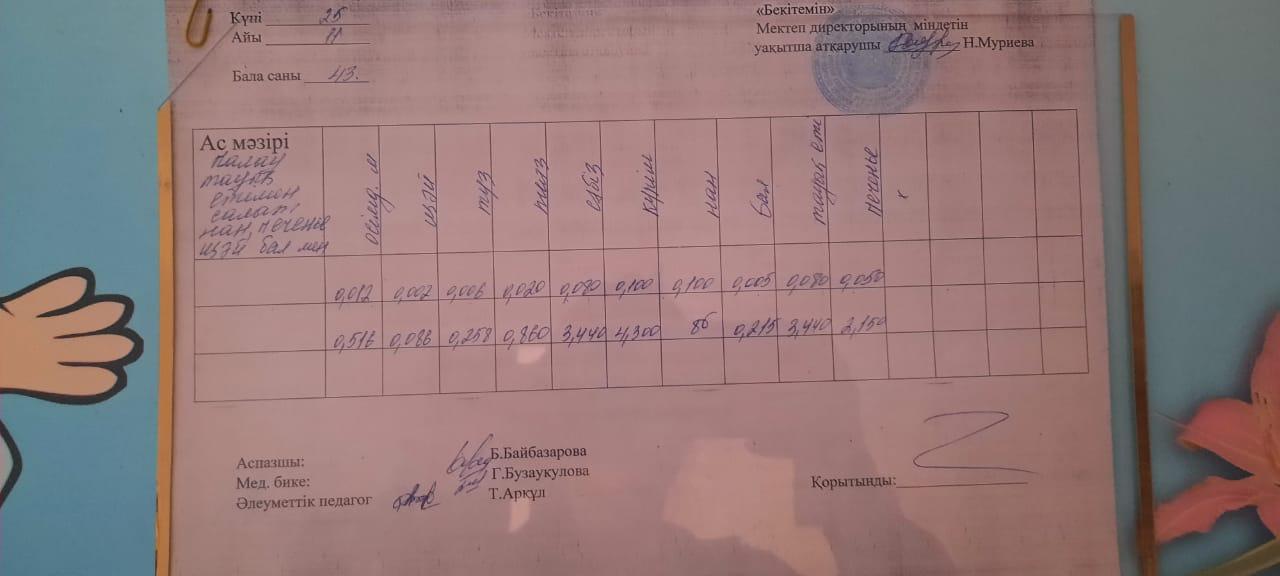 Күні 25
Айы 11
Бала саны 43.
«Бекітемін»
Мектеп директорының міндетін
уақытша атқарушы Н.Муриева
Ас мәзірі
палау
тауық
етімен
салат
нан, печенье
шәй бал мен
өсімд. м шәй тұз пияз сәбіз күріш нан бал тауық еті печенье
0,012 0,002 0,006 0,020 0,080 0,100 0,100 0,005 0,080 0,050
0,516 0,086 0,258 0,860 3,440 4,300 8б 0,215 3,440 2,150
Аспазшы: Б.Байбазарова
Мед. бике: Г.Бузаукулова
Әлеуметтік педагог Т.Арқұл
Қорытынды: